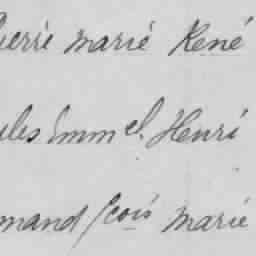 Pierre Marie René
ules Emm.el Henri
mand fcois Marie